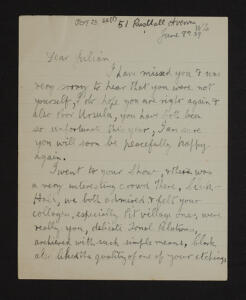 51 Rusthall Avenue W4
June 8th 39
Dear Julian
I have missed you & was
very sorry to hear that you were not
yourself, I do hope you are right again &
also poor Ursula, you have both been
so unfortunate this year, I am sure
you will soon be peacefully happy
again.
I went to your show, there was
a very interesting crowd there,
we both admired & felt your
collages, especially Pit village ones, were
really you, delicate tonal relations,
achieved with such simple means, black
etc like the quality of one of your etchings